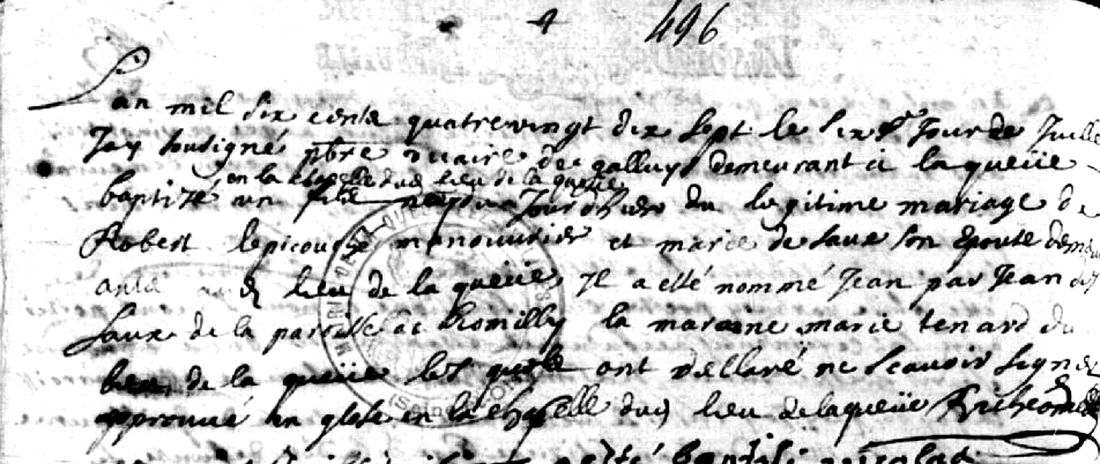 4 496
Lan mil six cents quatrevingt dix sept le six Jour de Juille
Jay sousigné pbre vicaire de galluys demeurant a la queüe
en la chapelle dud lieu de la queüe
baptizé un fils né du Jour dhier du legitime mariage de
Robert lepicouse manouvrier et marie de saux son Epouse demeu
ants aud lieu de la queüe Il a esté nommé Jean par Jean de
saux de la paroisse de Romilly la maraine marie tenard du
lieu de la queüe les quels ont dellaré ne scavoir signer
approuvé en glose en la chapelle dud lieu de la queüe
esté baptisé nicolas